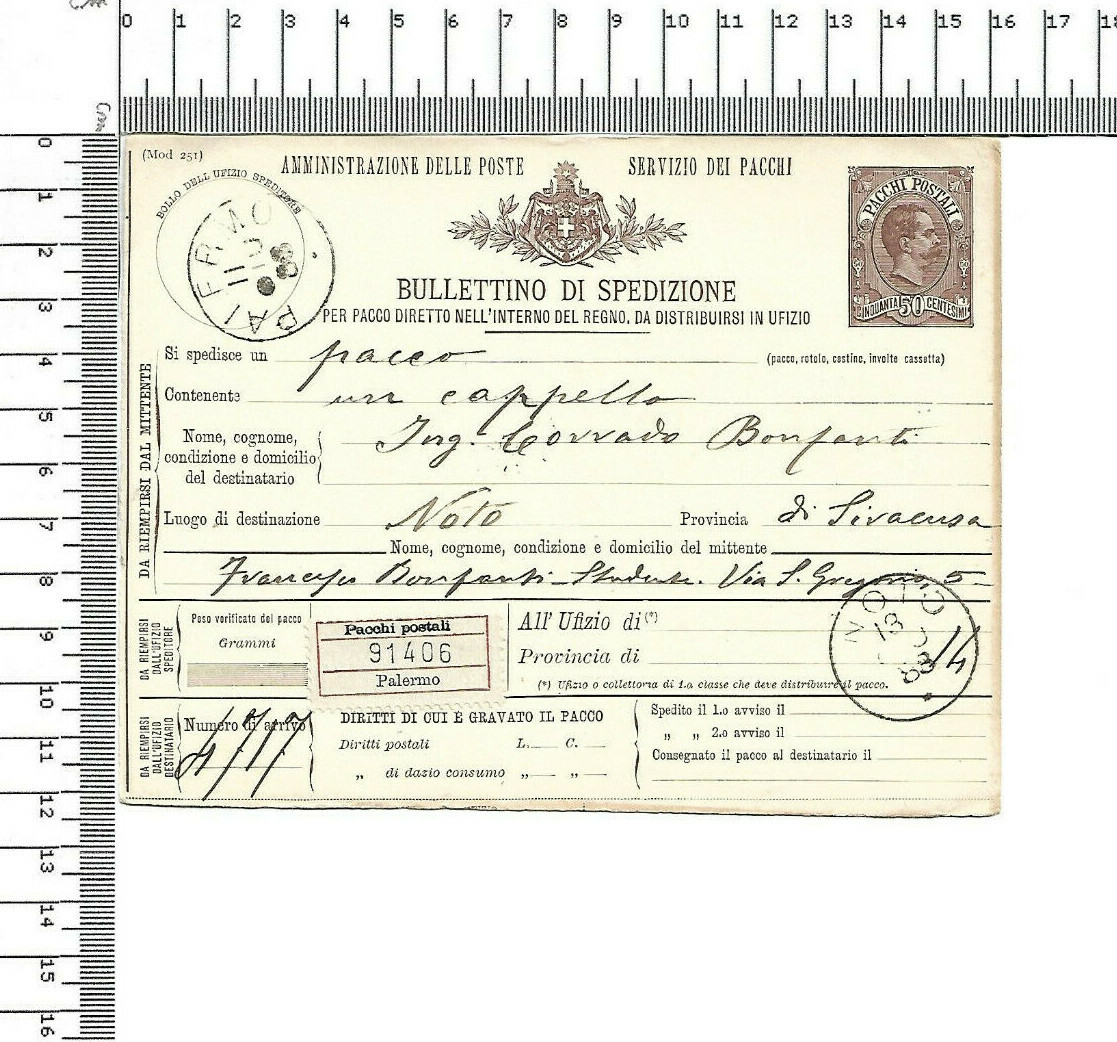 cm
0 1 2 3 4 5 6 7 8 9 10 11 12 13 14 15 16 17 18
cm
0
1
2
3
4
5
6
7
8
9
10
11
12
13
14
15
16
(Mod 251)
AMMINISTRAZIONE DELLE POSTE SERVIZIO DEI PACCHI
BOLLO DELL UFIZIO SPEDITORE
PALERMO
11
88
PACCHI POSTALI
CINQUANTA 50 CENTESIMI
BULLETTINO DI SPEDIZIONE
PER PACCO DIRETTO NELL'INTERNO DEL REGNO, DA DISTRIBUIRSI IN UFIZIO
DA RIEMPIRSI DAL MITTENTE
Si spedisce un pacco (pacco, rotolo, cestino, involte cassetta)
Contenente un cappello
Nome, cognome, condizione e domicilio del destinatario
Ing. Corrado Bonfanti
Luogo di destinazione Noto Provincia di Siracusa
Nome, cognome, condizione e domicilio del mittente
Francesco Bonfanti Studente. Via S. Gregorio, 5
DA RIEMPIRSI DALL'UFIZIO SPEDITORE
Peso verificato del pacco
Grammi
Pacchi postali
91406
Palermo
All' Ufizio di (*)
Provincia di
(*) Ufizio o collettoria di 1.a classe che deve distribuire il pacco.
NOTO
13
88
14
DA RIEMPIRSI DALL'UFIZIO DESTINATARIO
Numero di arrivo
4717
DIRITTI DI CUI È GRAVATO IL PACCO
Diritti postali L. C.
„ di dazio consumo „ „
Spedito il 1.o avviso il
„ „ 2.o avviso il
Consegnato il pacco al destinatario il